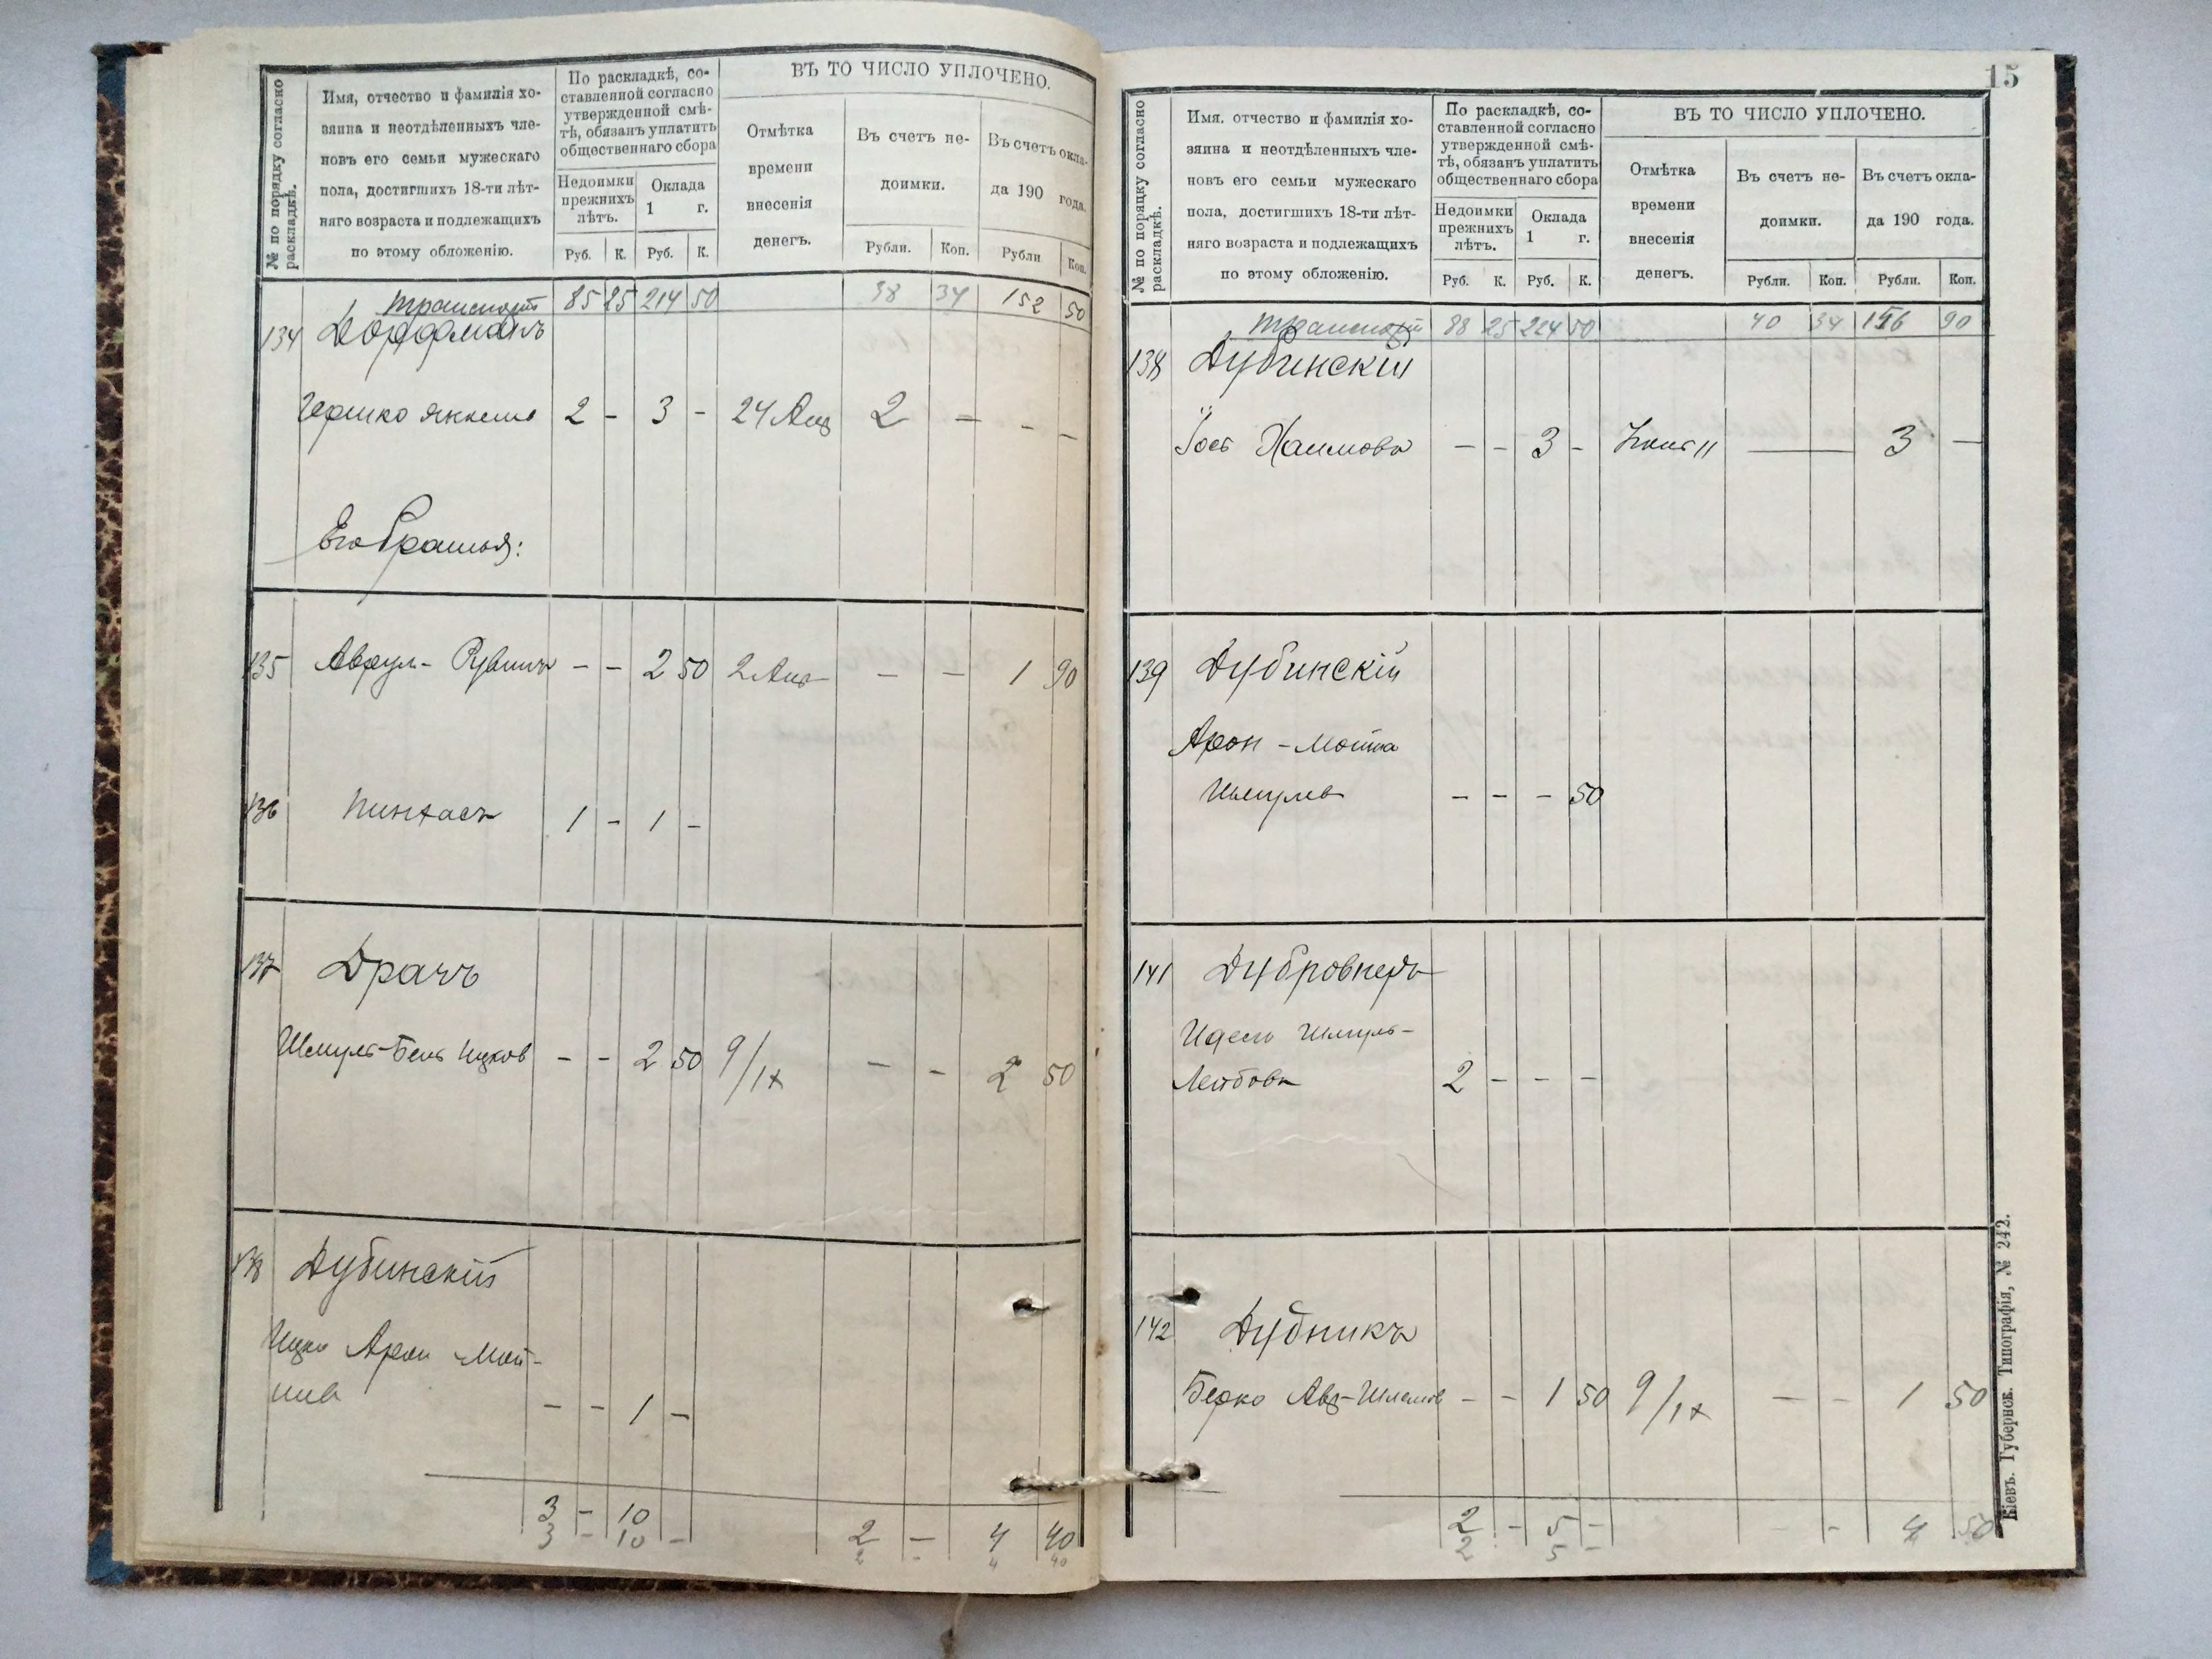 № по порядку согласно раскладкѣ.
Имя, отчество и фамилія хо-
зяина и неотдѣленныхъ чле-
новъ его семьи мужескаго
пола, достигшихъ 18-ти лѣт-
няго возраста и подлежащихъ
по этому обложенію.
По раскладкѣ, со-
ставленной согласно
утвержденной смѣ-
тѣ, обязанъ уплатить
общественнаго сбора
Недоимки
прежнихъ
лѣтъ.
Оклада
1 г.
Руб. К. Руб. К.
ВЪ ТО ЧИСЛО УПЛОЧЕНО.
Отмѣтка
времени
внесенія
денегъ.
Въ счетъ не-
доимки.
Рубли. Коп.
Въ счетъ окла-
да 190 года.
Рубли Коп.
Транспортъ 85 25 214 50 38 34 152 50
134 Дорфманъ
2 - 3 - 24 Авг 2 - - -
Его братья:
135 Аврум- Рувинъ - - 2 50 2 Авг - - 1 90
136 Пинхасъ 1 - 1 -
137 Драчъ
Шмуль-Бень Ицков - - 2 50 9/IX - - 2 50
138 Дубинскій
Ицко Арон Мот-
- - 1 -
3 - 10
3 - 10 - 2 - 4 40
2 - 4 40
15
№ по порядку согласно раскладкѣ.
Имя, отчество и фамилія хо-
зяина и неотдѣленныхъ чле-
новъ его семьи мужескаго
пола, достигшихъ 18-ти лѣт-
няго возраста и подлежащихъ
по этому обложенію.
По раскладкѣ, со-
ставленной согласно
утвержденной смѣ-
тѣ, обязанъ уплатить
общественнаго сбора
Недоимки
прежнихъ
лѣтъ.
Оклада
1 г.
Руб. К. Руб. К.
ВЪ ТО ЧИСЛО УПЛОЧЕНО.
Отмѣтка
времени
внесенія
денегъ.
Въ счетъ не-
доимки.
Рубли. Коп.
Въ счетъ окла-
да 190 года.
Рубли. Коп.
Транспортъ 88 25 224 50 40 34 156 90
138 Дубинскій
Хаимовъ - - 3 - 3 -
139 Дубинскій
Арон - Мотка
Шмулев - - - 50
141 Дубровнеръ
Шмуль-
Лейбовъ 2 - - -
142 Дубникъ
Берко Авр-Шлемов - - 1 50 9/IX - - 1 50
2 - 5 - - - 4 50
2 5 -
Кіевъ. Губернск. Типографія, № 242.